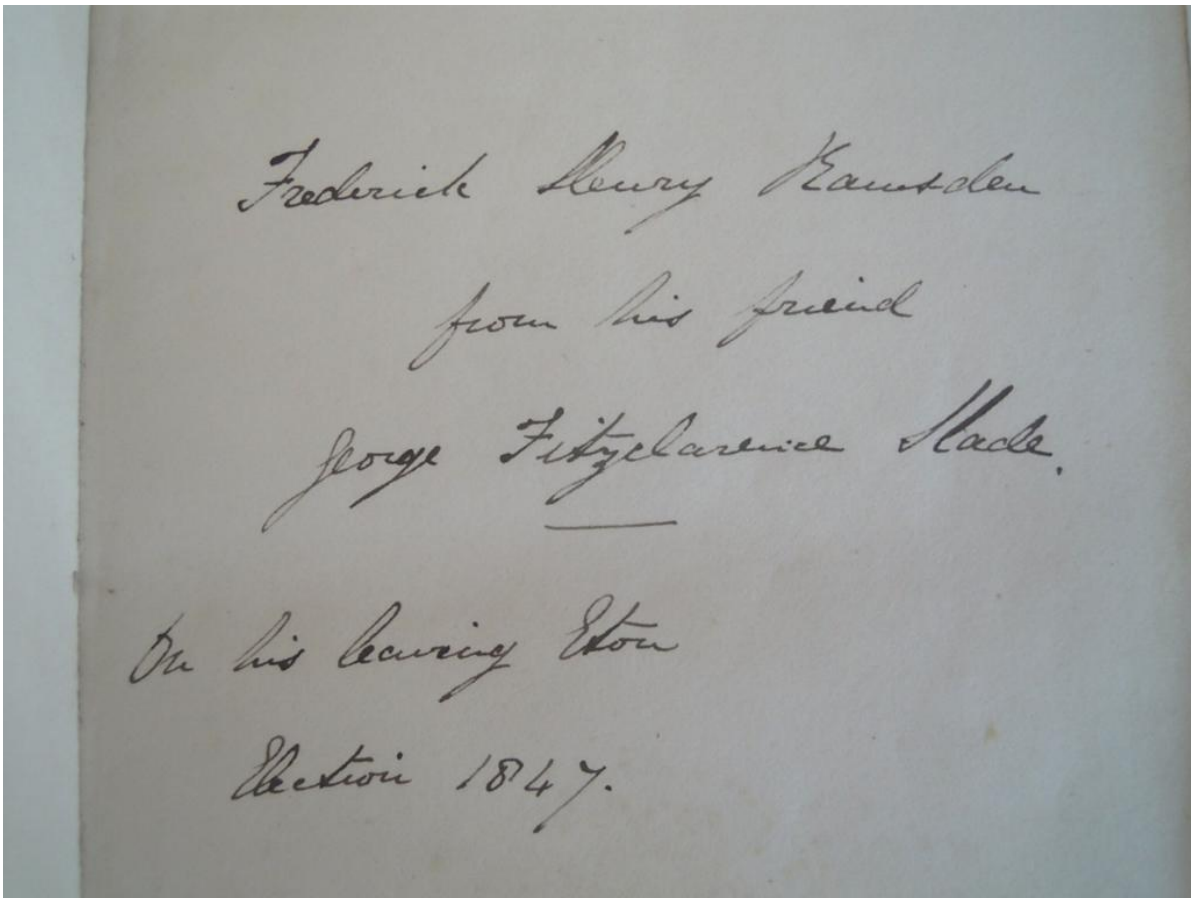 Frederick Henry Ramsden
from his friend
George Fitzclarence Slade.
On his leaving Eton
Election 1847.